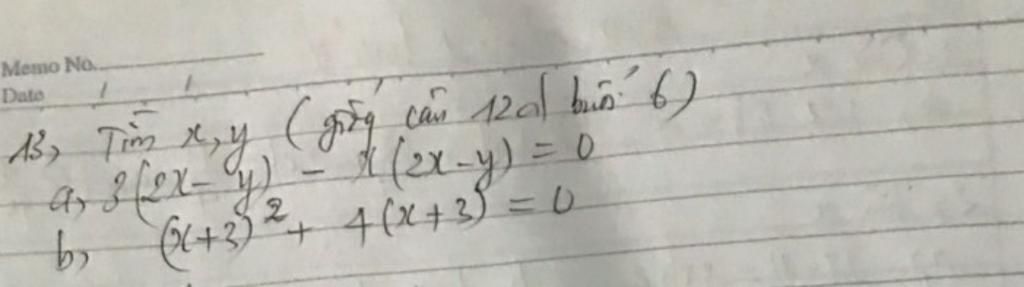 Memo No.
Date / /
13, Tìm x, y (giống câu 12d buổi 6)
a, 3(2x - y) - x(2x - y) = 0
b, (x+3)² + 4(x+3) = 0